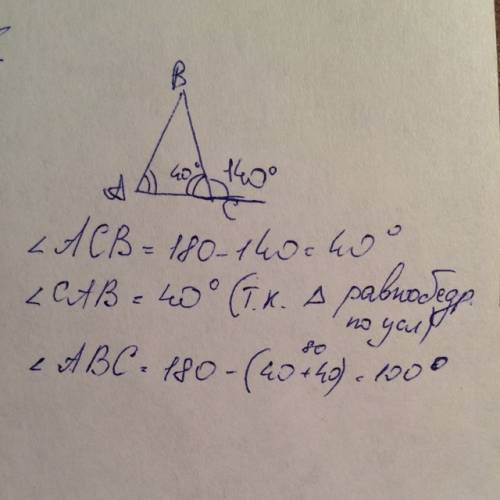 B
A
40°
140°
C
∠ACB = 180 - 140 = 40°
∠CAB = 40° (т.к. △ равнобедр.
по усл)
80
∠ABC = 180 - (40+40) = 100°